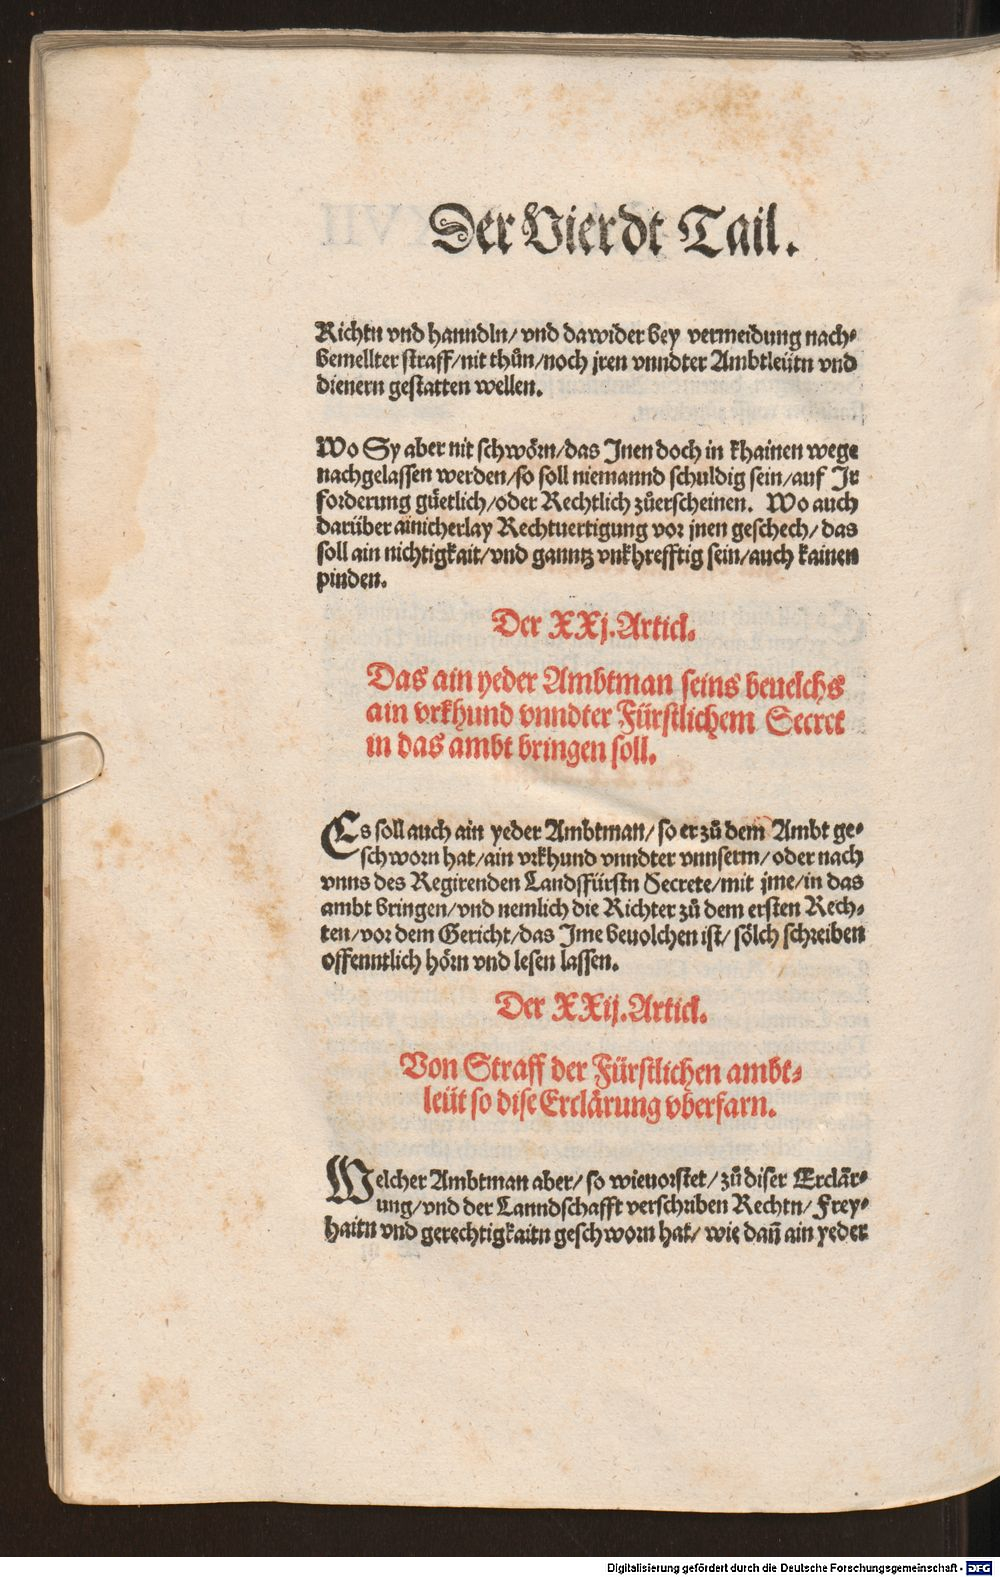 Der Vierdt Tail.
Richtn vnd hanndln/ vnd dawider bey vermeidung nach⸗
bemellter straff/nit thůn/noch jren vnndter Ambtleütn vnd
dienern gestatten wellen.
Wo Sy aber nit schwörn/das Jnen doch in khainen wege
nachgelassen werden/so soll niemannd schuldig sein/auf Jr
forderung güetlich/oder Rechtlich zůerscheinen. Wo auch
darüber ainicherlay Rechtuertigung vor jnen geschech/ das
soll ain nichtigkait/vnd ganntz vnkhrefftig sein/auch kainen
pinden.
Der XXj. Articl.
Das ain yeder Ambtman seins beuelchs
ain vrkhund vnndter Fürstlichem Secret
in das ambt bringen soll.
Es soll auch ain yeder Ambtman/ so er zů dem Ambt ge⸗
schworn hat/ain vrkhund vnndter vnnserm/ oder nach
vnns des Regirenden Landsfürstn Secrete/mit jme/in das
ambt bringen/vnd nemlich die Richter zů dem ersten Rech⸗
ten/vor dem Gericht/das Jme beuolchen ist/ sölch schreiben
offenntlich hörn vnd lesen lassen.
Der XXij. Articl.
Von Straff der Fürstlichen ambt⸗
leüt so dise Erclärung vberfarn.
Welcher Ambtman aber/ so wieuorstet/ zů diser Erclär⸗
ung/vnd der Lanndschafft verschriben Rechtn/ Frey⸗
haitn vnd gerechtigkaitn geschworn hat/ wie dan̄ ain yeder
Digitalisierung gefördert durch die Deutsche Forschungsgemeinschaft - DFG